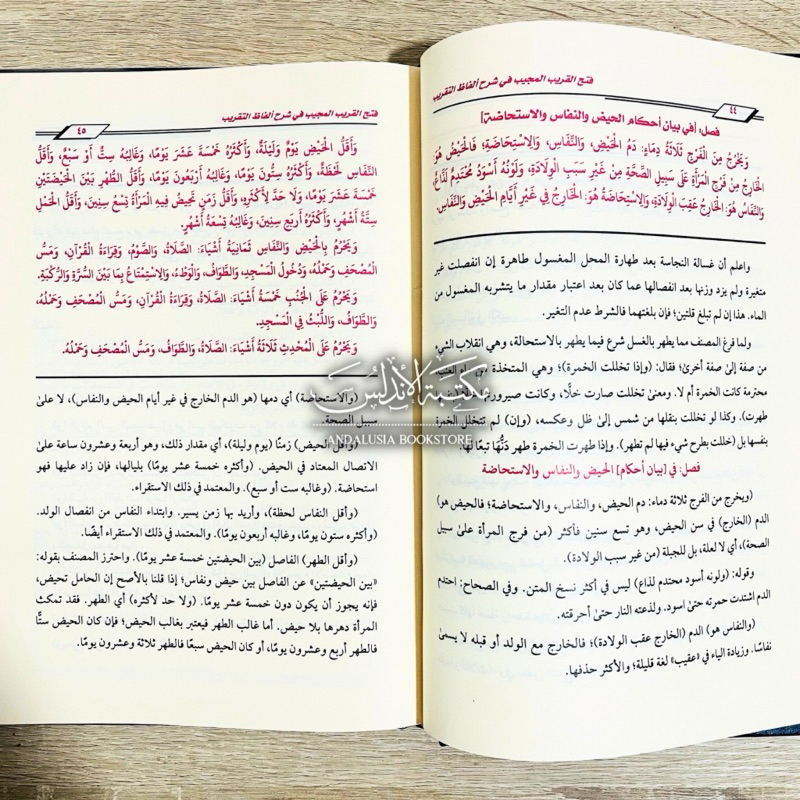 فتح القريب المجيب في شرح ألفاظ التقريب
٤٤
فصل: [في بيان أحكام الحيض والنفاس والاستحاضة]
وَيَخْرُجُ مِنَ الْفَرْجِ ثَلَاثَةُ دِمَاءٍ: دَمُ الْحَيْضِ، وَالنِّفَاسِ، وَالِاسْتِحَاضَةِ؛ فَالْحَيْضُ هُوَ:
الْخَارِجُ مِنْ فَرْجِ الْمَرْأَةِ عَلَى سَبِيلِ الصِّحَّةِ مِنْ غَيْرِ سَبَبِ الْوِلَادَةِ، وَلَوْنُهُ أَسْوَدُ مُحْتَدِمٌ لَذَّاعٌ،
وَالنِّفَاسُ هُوَ: الْخَارِجُ عَقِبَ الْوِلَادَةِ، وَالِاسْتِحَاضَةُ هُوَ: الْخَارِجُ فِي غَيْرِ أَيَّامِ الْحَيْضِ وَالنِّفَاسِ.
واعلم أن غسالة النجاسة بعد طهارة المحل المغسول طاهرة إن انفصلت غير
متغيرة ولم يزد وزنها بعد انفصالها عما كان بعد اعتبار مقدار ما يتشربه المغسول من
الماء. هذا إن لم تبلغ قلتين؛ فإن بلغتهما فالشرط عدم التغير.
ولما فرغ المصنف مما يطهر بالغسل شرع فيما يطهر بالاستحالة، وهي انقلاب الشيء
من صفة إلى صفة أخرى؛ فقال: (وإذا تخللت الخمرة)؛ وهي المتخذة من ماء العنب،
محترمة كانت الخمرة أم لا. ومعنى تخللت صارت خلًّا، وكانت صيرورتها خلًّا (بنفسها
طهرت). وكذا لو تخللت بنقلها من شمس إلى ظل وعكسه، (وإن) لم تتخلل الخمرة
بنفسها بل (خللت بطرح شيء فيها لم تطهر). وإذا طهرت الخمرة طهر دَنُّها تبعًا لها.
فصل: في [بيان أحكام] الحيض والنفاس والاستحاضة
(ويخرج من الفرج ثلاثة دماء: دم الحيض، والنفاس، والاستحاضة؛ فالحيض هو)
الدم (الخارج) في سن الحيض، وهو تسع سنين فأكثر (من فرج المرأة على سبيل
الصحة)، أي لا لعلة، بل للجبلة (من غير سبب الولادة).
وقوله: (ولونه أسود محتدم لذاع) ليس في أكثر نسخ المتن. وفي الصحاح: احتدم
الدم اشتدت حمرته حتى اسود. ولذعته النار حتى أحرقته.
(والنفاس هو) الدم (الخارج عقب الولادة)؛ فالخارج مع الولد أو قبله لا يسمى
نفاسًا. وزيادة الياء في «عقيب» لغة قليلة؛ والأكثر حذفها.
فتح القريب المجيب في شرح ألفاظ التقريب
٤٥
وَأَقَلُّ الْحَيْضِ يَوْمٌ وَلَيْلَةٌ، وَأَكْثَرُهُ خَمْسَةَ عَشَرَ يَوْمًا، وَغَالِبُهُ سِتٌّ أَوْ سَبْعٌ، وَأَقَلُّ
النِّفَاسِ لَحْظَةٌ، وَأَكْثَرُهُ سِتُّونَ يَوْمًا، وَغَالِبُهُ أَرْبَعُونَ يَوْمًا، وَأَقَلُّ الطُّهْرِ بَيْنَ الْحَيْضَتَيْنِ
خَمْسَةَ عَشَرَ يَوْمًا، وَلَا حَدَّ لِأَكْثَرِهِ، وَأَقَلُّ زَمَنٍ تَحِيضُ فِيهِ الْمَرْأَةُ تِسْعُ سِنِينَ، وَأَقَلُّ الْحَمْلِ
سِتَّةُ أَشْهُرٍ، وَأَكْثَرُهُ أَرْبَعُ سِنِينَ، وَغَالِبُهُ تِسْعَةُ أَشْهُرٍ.
وَيَحْرُمُ بِالْحَيْضِ وَالنِّفَاسِ ثَمَانِيَةُ أَشْيَاءَ: الصَّلَاةُ، وَالصَّوْمُ، وَقِرَاءَةُ الْقُرْآنِ، وَمَسُّ
الْمُصْحَفِ وَحَمْلُهُ، وَدُخُولُ الْمَسْجِدِ، وَالطَّوَافُ، وَالْوَطْءُ، وَالِاسْتِمْتَاعُ بِمَا بَيْنَ السُّرَّةِ وَالرُّكْبَةِ.
وَيَحْرُمُ عَلَى الْجُنُبِ خَمْسَةُ أَشْيَاءَ: الصَّلَاةُ، وَقِرَاءَةُ الْقُرْآنِ، وَمَسُّ الْمُصْحَفِ وَحَمْلُهُ،
وَالطَّوَافُ، وَاللُّبْثُ فِي الْمَسْجِدِ.
وَيَحْرُمُ عَلَى الْمُحْدِثِ ثَلَاثَةُ أَشْيَاءَ: الصَّلَاةُ، وَالطَّوَافُ، وَمَسُّ الْمُصْحَفِ وَحَمْلُهُ.
(والاستحاضة) أي دمها (هو الدم الخارج في غير أيام الحيض والنفاس)، لا على
سبيل الصحة.
(وأقل الحيض) زمنًا (يوم وليلة)، أي مقدار ذلك، وهو أربعة وعشرون ساعة على
الاتصال المعتاد في الحيض. (وأكثره خمسة عشر يومًا) بلياليها، فإن زاد عليها فهو
استحاضة. (وغالبه ست أو سبع). والمعتمد في ذلك الاستقراء.
(وأقل النفاس لحظة)، وأريد بها زمن يسير. وابتداء النفاس من انفصال الولد.
(وأكثره ستون يومًا، وغالبه أربعون يومًا). والمعتمد في ذلك الاستقراء أيضًا.
(وأقل الطهر) الفاصل (بين الحيضتين خمسة عشر يومًا). واحترز المصنف بقوله:
«بين الحيضتين» عن الفاصل بين حيض ونفاس؛ إذا قلنا بالأصح إن الحامل تحيض،
فإنه يجوز أن يكون دون خمسة عشر يومًا. (ولا حد لأكثره) أي الطهر. فقد تمكث
المرأة دهرها بلا حيض. أما غالب الطهر فيعتبر بغالب الحيض؛ فإن كان الحيض ستًّا
فالطهر أربع وعشرون يومًا، أو كان الحيض سبعًا فالطهر ثلاثة وعشرون يومًا.
مكتبة الأندلس
ANDALUSIA BOOKSTORE